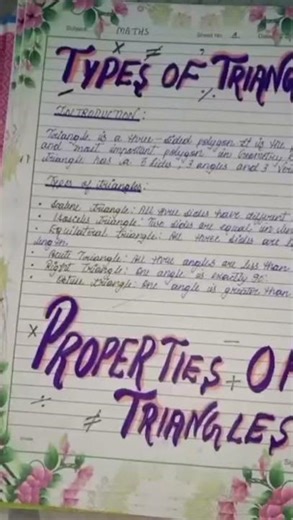 Subject MATHS Sheet No.
× ≠ ?
TYPES OF TRIANG
÷
INTRODUCTION:
Triangle is a three-sided polygon. It is the
and "most important polygon" in Geometry.
triangle has a 3 sides, 3 angles and 3
Types of triangles:
• Scalene Triangle: All three sides have different
• Isosceles Triangle: Two sides are equal in
• Equilateral Triangle: All three sides are
length.
• Acute Triangle: All three angles are less than
• Right Triangle: One angle is exactly 90°
• Obtuse Triangle: One angle is greater than
× −
PROPERTIES OF
÷ ≠ +
TRIANGLES